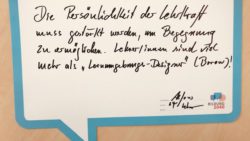 Die Persönlichkeit der Lehrkraft
muss gestärkt werden, um Begegnung
zu ermöglichen. Lehrer/innen sind viel
mehr als „Lernumgebungs-Designer" (Borow)!
BILDUNG